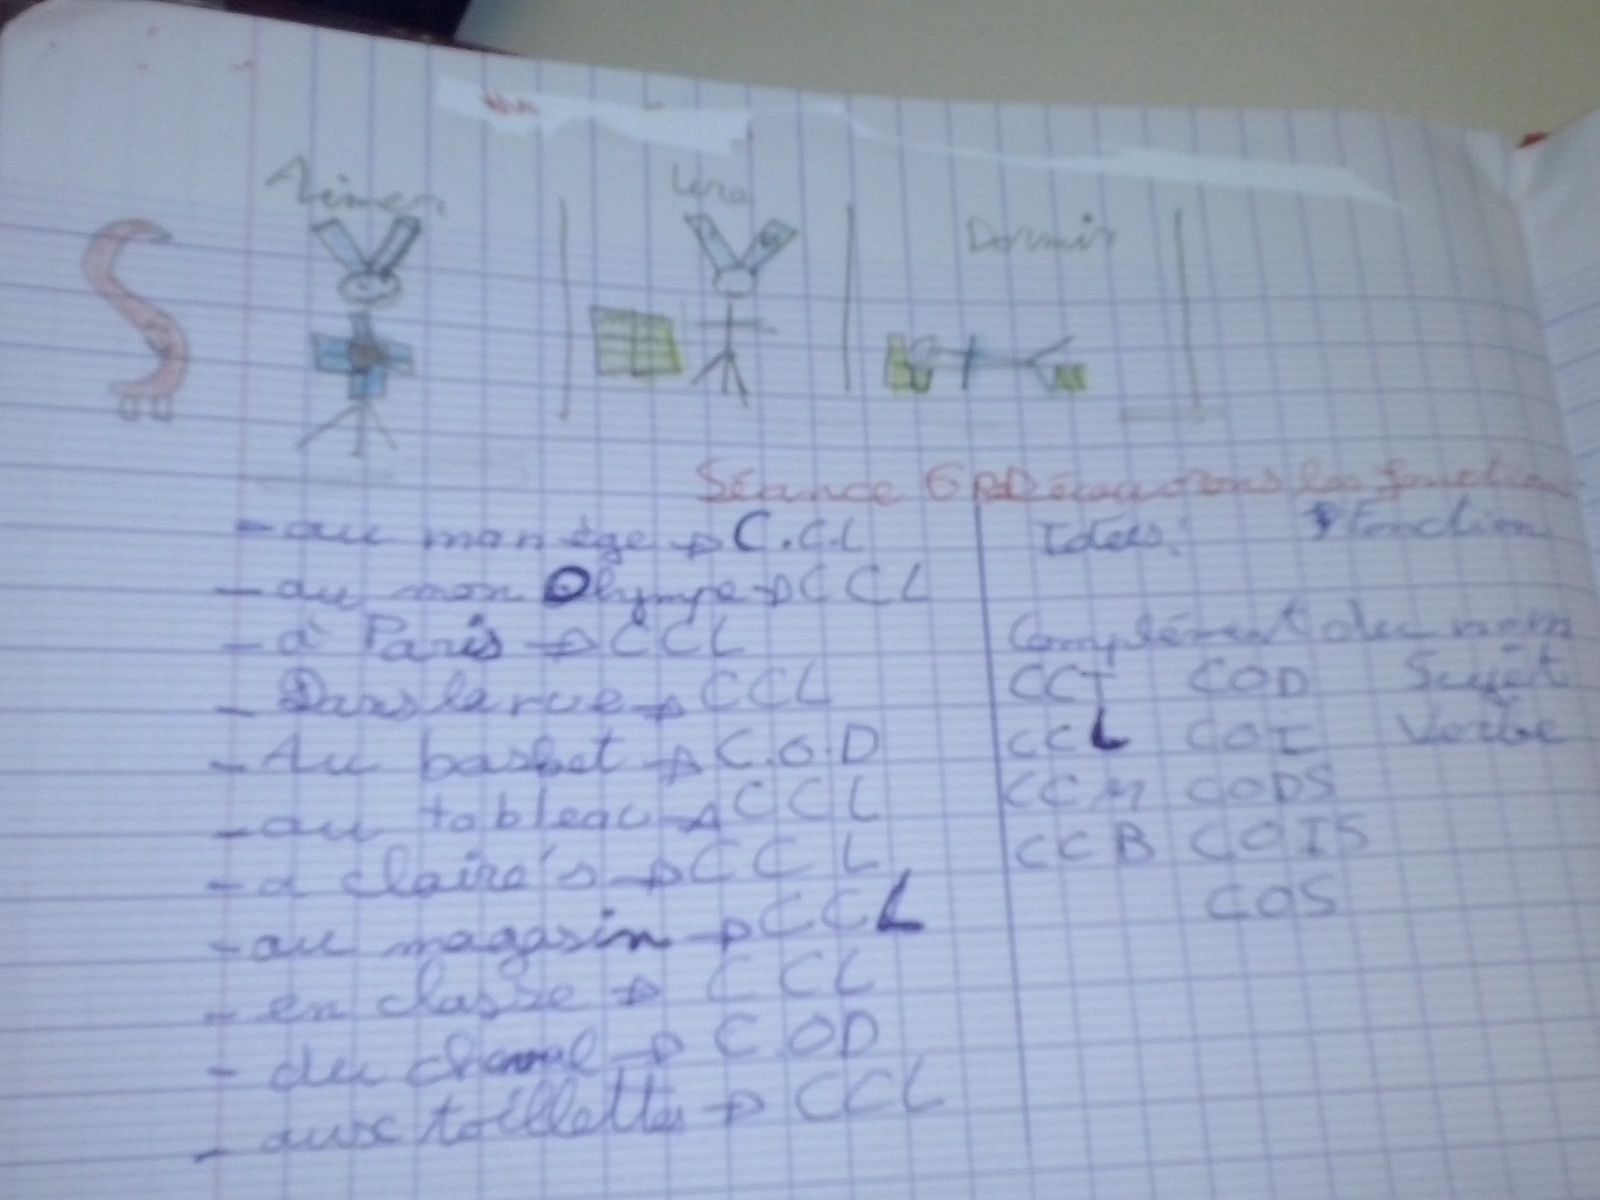 Aimer
Lire
Dormir
Séance 6 Découvrons les fonction
- au manège → C.C.L
- au mon Olympe → CCL
- à Paris → CCL
- Dans la rue → CCL
- Au basket → C.O.D
- au tableau → CCL
- a claire's → CCL
- au magasin → CCL
- en classe → CCL
- du cheval → COD
- aux toillettes → CCL
Idées: Fonction
Complément du nom
CCT COD Sujet
CCL COI Verbe
CCM CODS
CCB COIS
COS